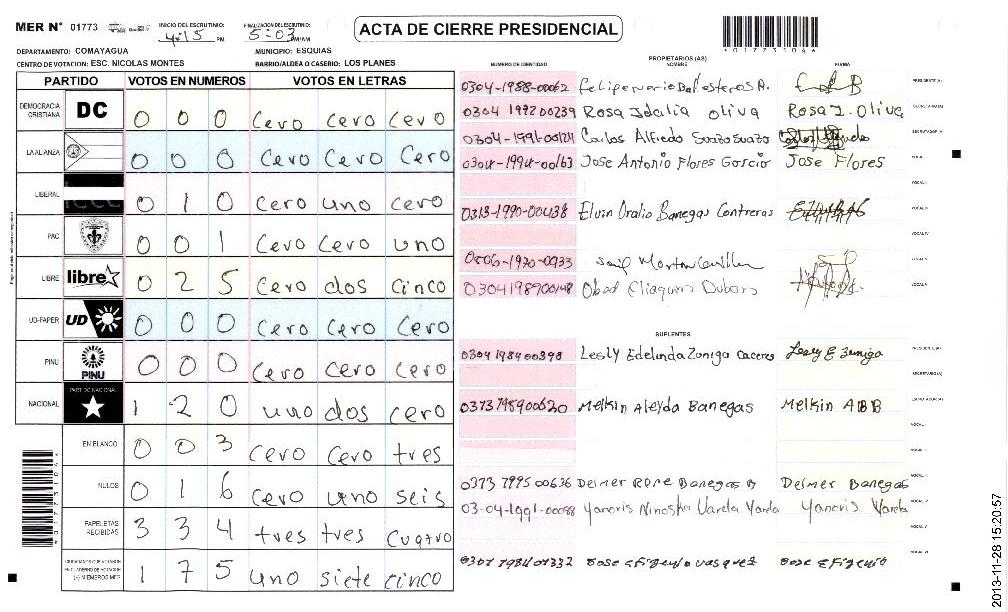 MER N° 01773 INICIO DEL ESCRUTINIO: 4:15 PM FINALIZACION DEL ESCRUTINIO: 5:03 PM/AM
ACTA DE CIERRE PRESIDENCIAL
DEPARTAMENTO: COMAYAGUA MUNICIPIO: ESQUIAS
CENTRO DE VOTACION: ESC. NICOLAS MONTES BARRIO/ALDEA O CASERIO: LOS PLANES
PARTIDO VOTOS EN NUMEROS VOTOS EN LETRAS
DEMOCRACIA CRISTIANA DC 0 0 0 Cero cero cero
LA ALIANZA 0 0 0 Cero Cero Cero
LIBERAL 0 1 0 cero uno cero
PAC 0 0 1 Cero Cero uno
LIBRE libre 0 2 5 Cero dos cinco
UD-FAPER UD 0 0 0 Cero Cero Cero
PINU PINU 0 0 0 Cero cero cero
NACIONAL PARTIDO NACIONAL 1 2 0 uno dos cero
EN BLANCO 0 0 3 Cero Cero tres
NULOS 0 1 6 Cero uno seis
PAPELETAS RECIBIDAS 3 3 4 tres tres Cuatro
1 7 5 uno siete cinco
PROPIETARIOS (AS)
NUMERO DE IDENTIDAD NOMBRE FIRMA
0304-1988-00062 PRESIDENTE(A)
0304 1972 00239 Rosa Idalia oliva Rosa I. Oliva SECRETARIO(A)
Carlos Alfredo Suazo Suazo ESCRUTADOR(A)
0304-1994-00163 Jose Antonio Flores Garcia Jose Flores VOCAL I
VOCAL II
0313-1990-00438 Elvin Oralio Banegas Contreras VOCAL III
VOCAL IV
VOCAL V
SUPLENTES
0304 1984 00390 Lesly Edelinda Zuniga Caceres Lesly E Zuniga PRESIDENTE(A)
SECRETARIO(A)
Melkin Aleyda Banegas Melkin ABB ESCRUTADOR(A)
VOCAL I
VOCAL II
Banegas Delmer Banegas
03-04-1991-00088 Varela Yanoris Varela
2013-11-28 15:20:57